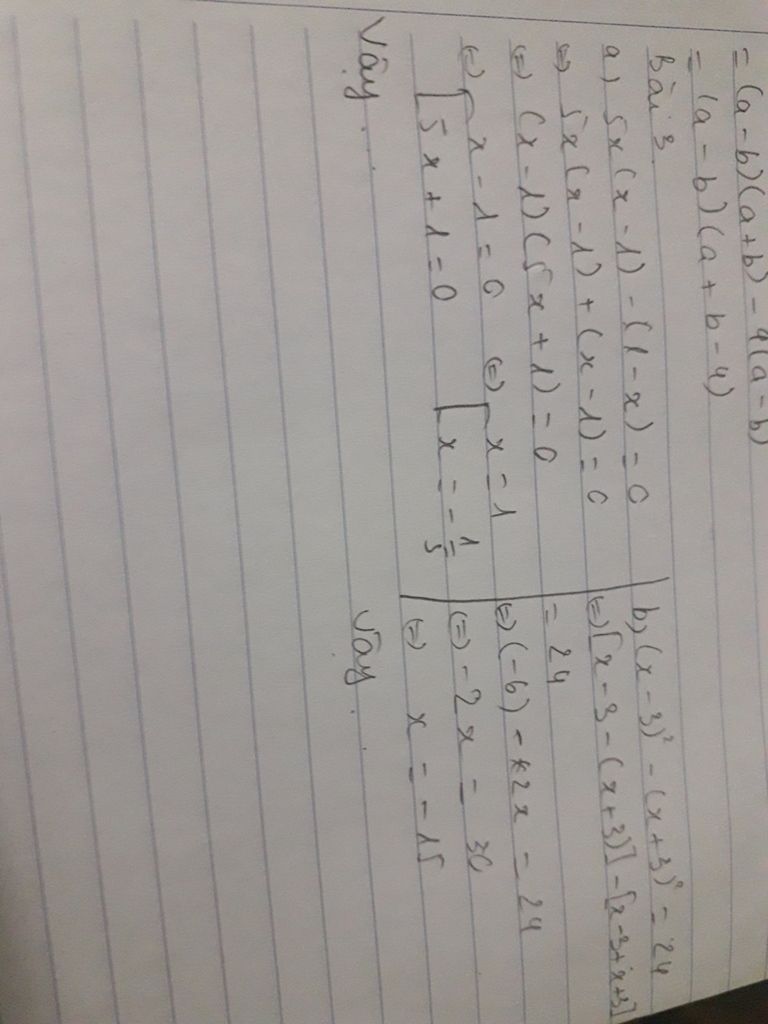 = (a-b)(a+b) - 4(a-b)
= (a-b)(a+b-4)
Bài 3
a) 5x(x-1) - (1-x) = 0
(=) 5x(x-1) + (x-1) = 0
(=) (x-1)(5x+1) = 0
(=) [ x-1 = 0 (=) [ x = 1
5x+1 = 0 x = -1/5
Vậy...
b) (x-3)² - (x+3)² = 24
(=) [x-3-(x+3)] - [x-3+x+3]
= 24
(=) (-6) - 2x = 24
(=) -2x = 30
(=) x = -15
Vậy..